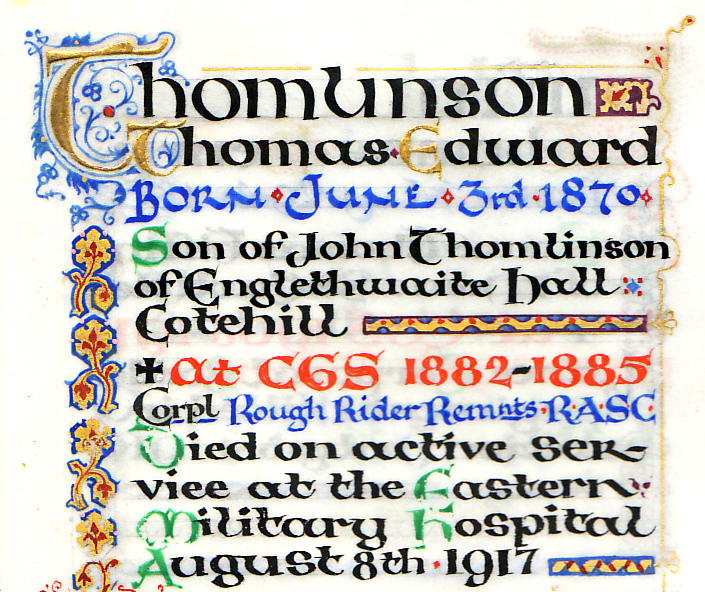 Thomlinson
Thomas·Edward
BORN·JUNE·3rd·1870·
Son of John Thomlinson
of Englethwaite Hall
Cotehill
+at CGS 1882-1885
Corpl Rough Rider Remnts·RASC
Died on active ser-
vice at the Eastern
Military Hospital
August 8th·1917